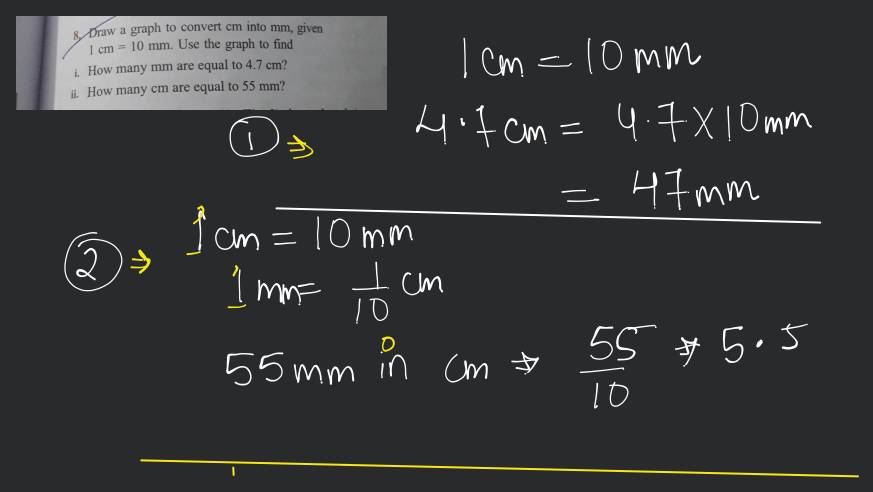 8. Draw a graph to convert cm into mm, given
1 cm = 10 mm. Use the graph to find
i. How many mm are equal to 4.7 cm?
ii. How many cm are equal to 55 mm?
1 cm = 10 mm
① ⇒ 4.7 cm = 4.7 × 10 mm
= 47 mm
② ⇒ 1 cm = 10 mm
1 mm = 1/10 cm
55 mm in cm ⇒ 55/10 ⇒ 5.5